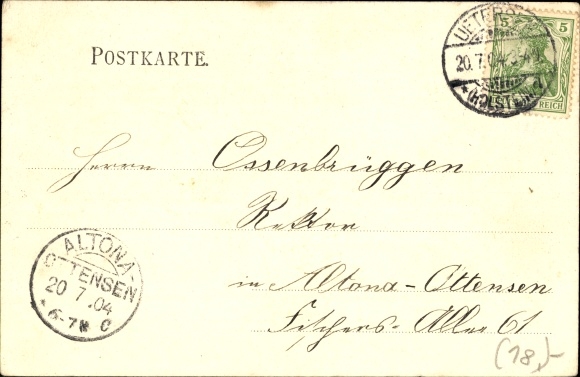 POSTKARTE.
5 5
REICH
UETERSEN
20.7.04
(HOLSTEIN)
Herrn Ossenbrüggen
Rektor
in Altona-Ottensen
Fischers-Allee 61
ALTONA-
OTTENSEN
20.7.04
6-7N
C
(18,-